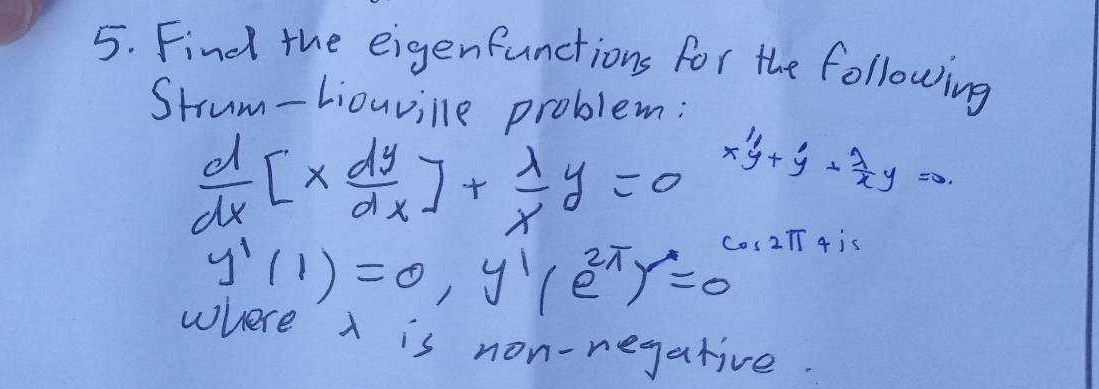 5. Find the eigenfunctions for the following
Strum-Liouville problem:
d/dx [x dy/dx] + λ/x y = 0
xy'' + y' + λ/x y = 0.
y'(1) = 0, y'(e^2π) = 0
cos 2π + is
where λ is non-negative.